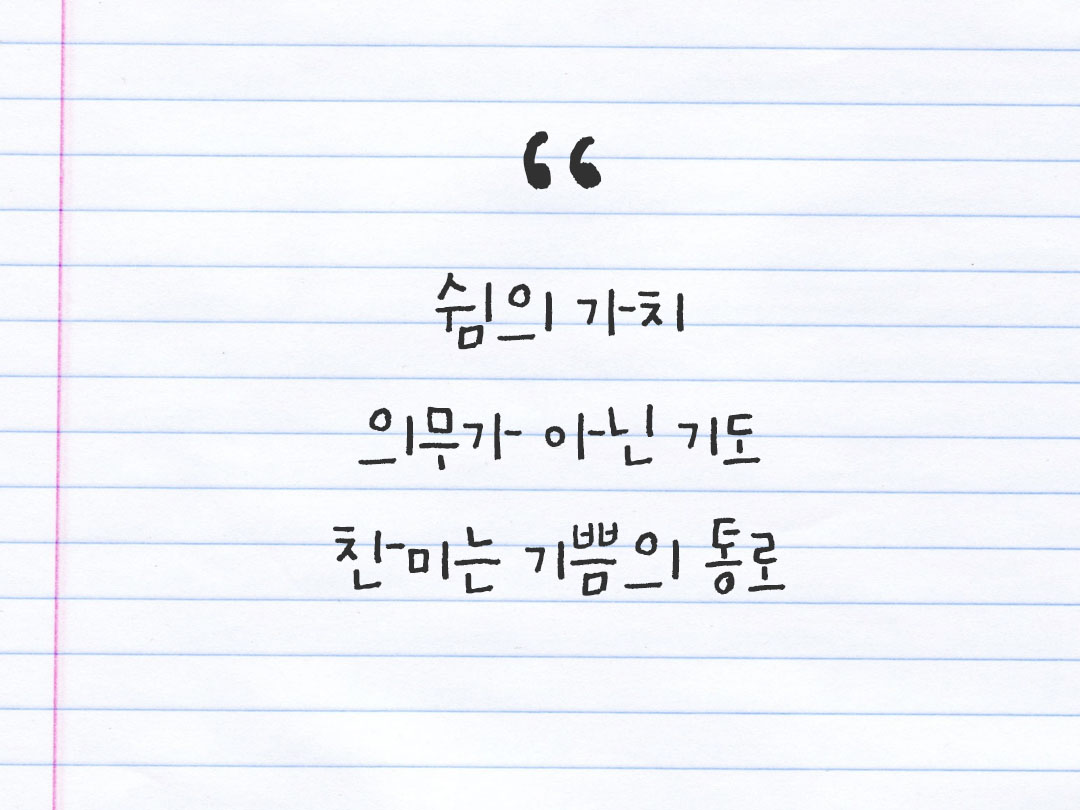 “
쉼의 가치
의무가 아닌 기도
찬미는 기쁨의 통로